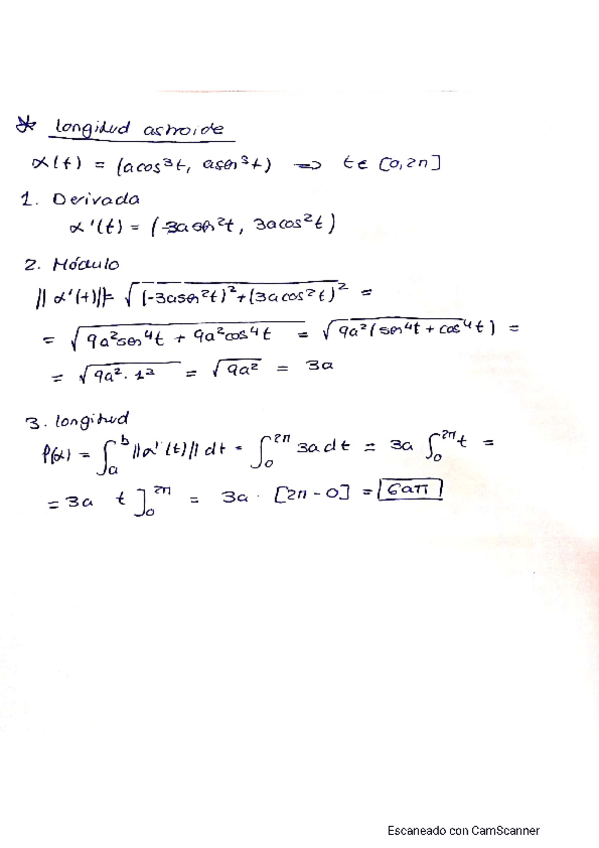 * longitud astroide
α(t) = (acos³t, asen³t) => t∈ [0,2π]
1. Derivada
α'(t) = (-3asen²t, 3acos²t)
2. Módulo
||α'(t)||= √(-3asen²t)²+(3acos²t)² =
= √9a²sen⁴t + 9a²cos⁴t = √9a²(sen⁴t + cos⁴t) =
= √9a². 1² = √9a² = 3a
3. longitud
l(α) = ∫ₐᵇ ||α'(t)|| dt = ∫₀²π 3a dt = 3a ∫₀²π t =
= 3a t ]₀²π = 3a · [2π - 0] = 6aπ
Escaneado con CamScanner